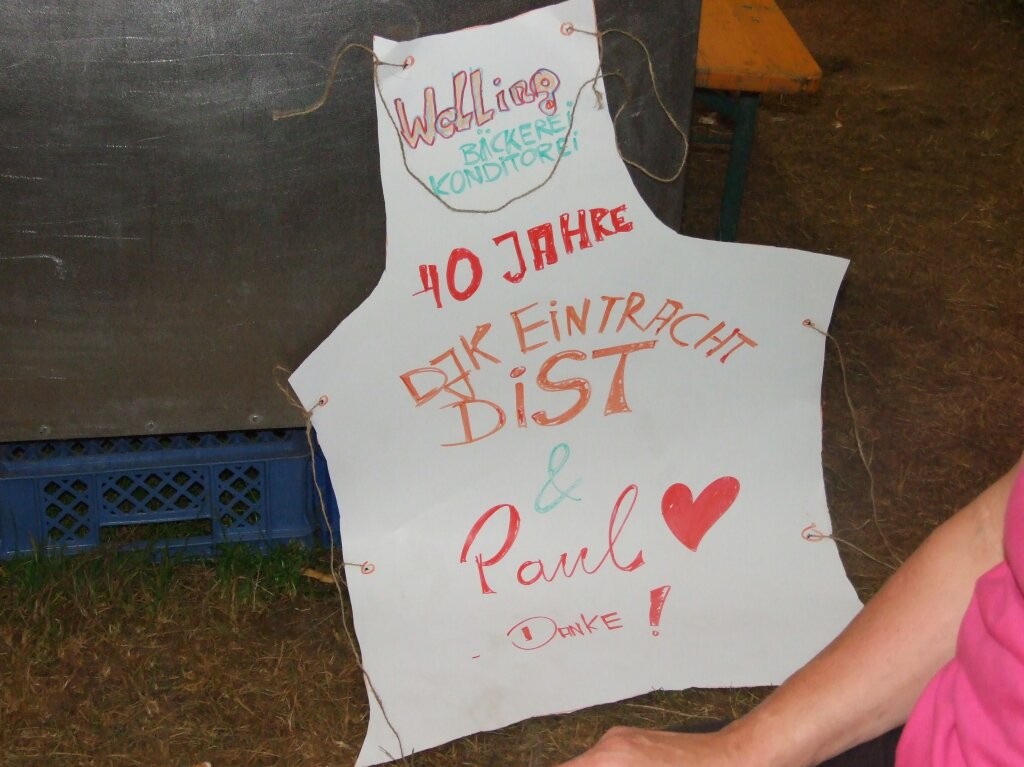 Welling
BÄCKEREi
KONDiTOREi
40 JAHRE
DJK EiNTRACHT
DiST
&
Paul ♥
- DANKE !